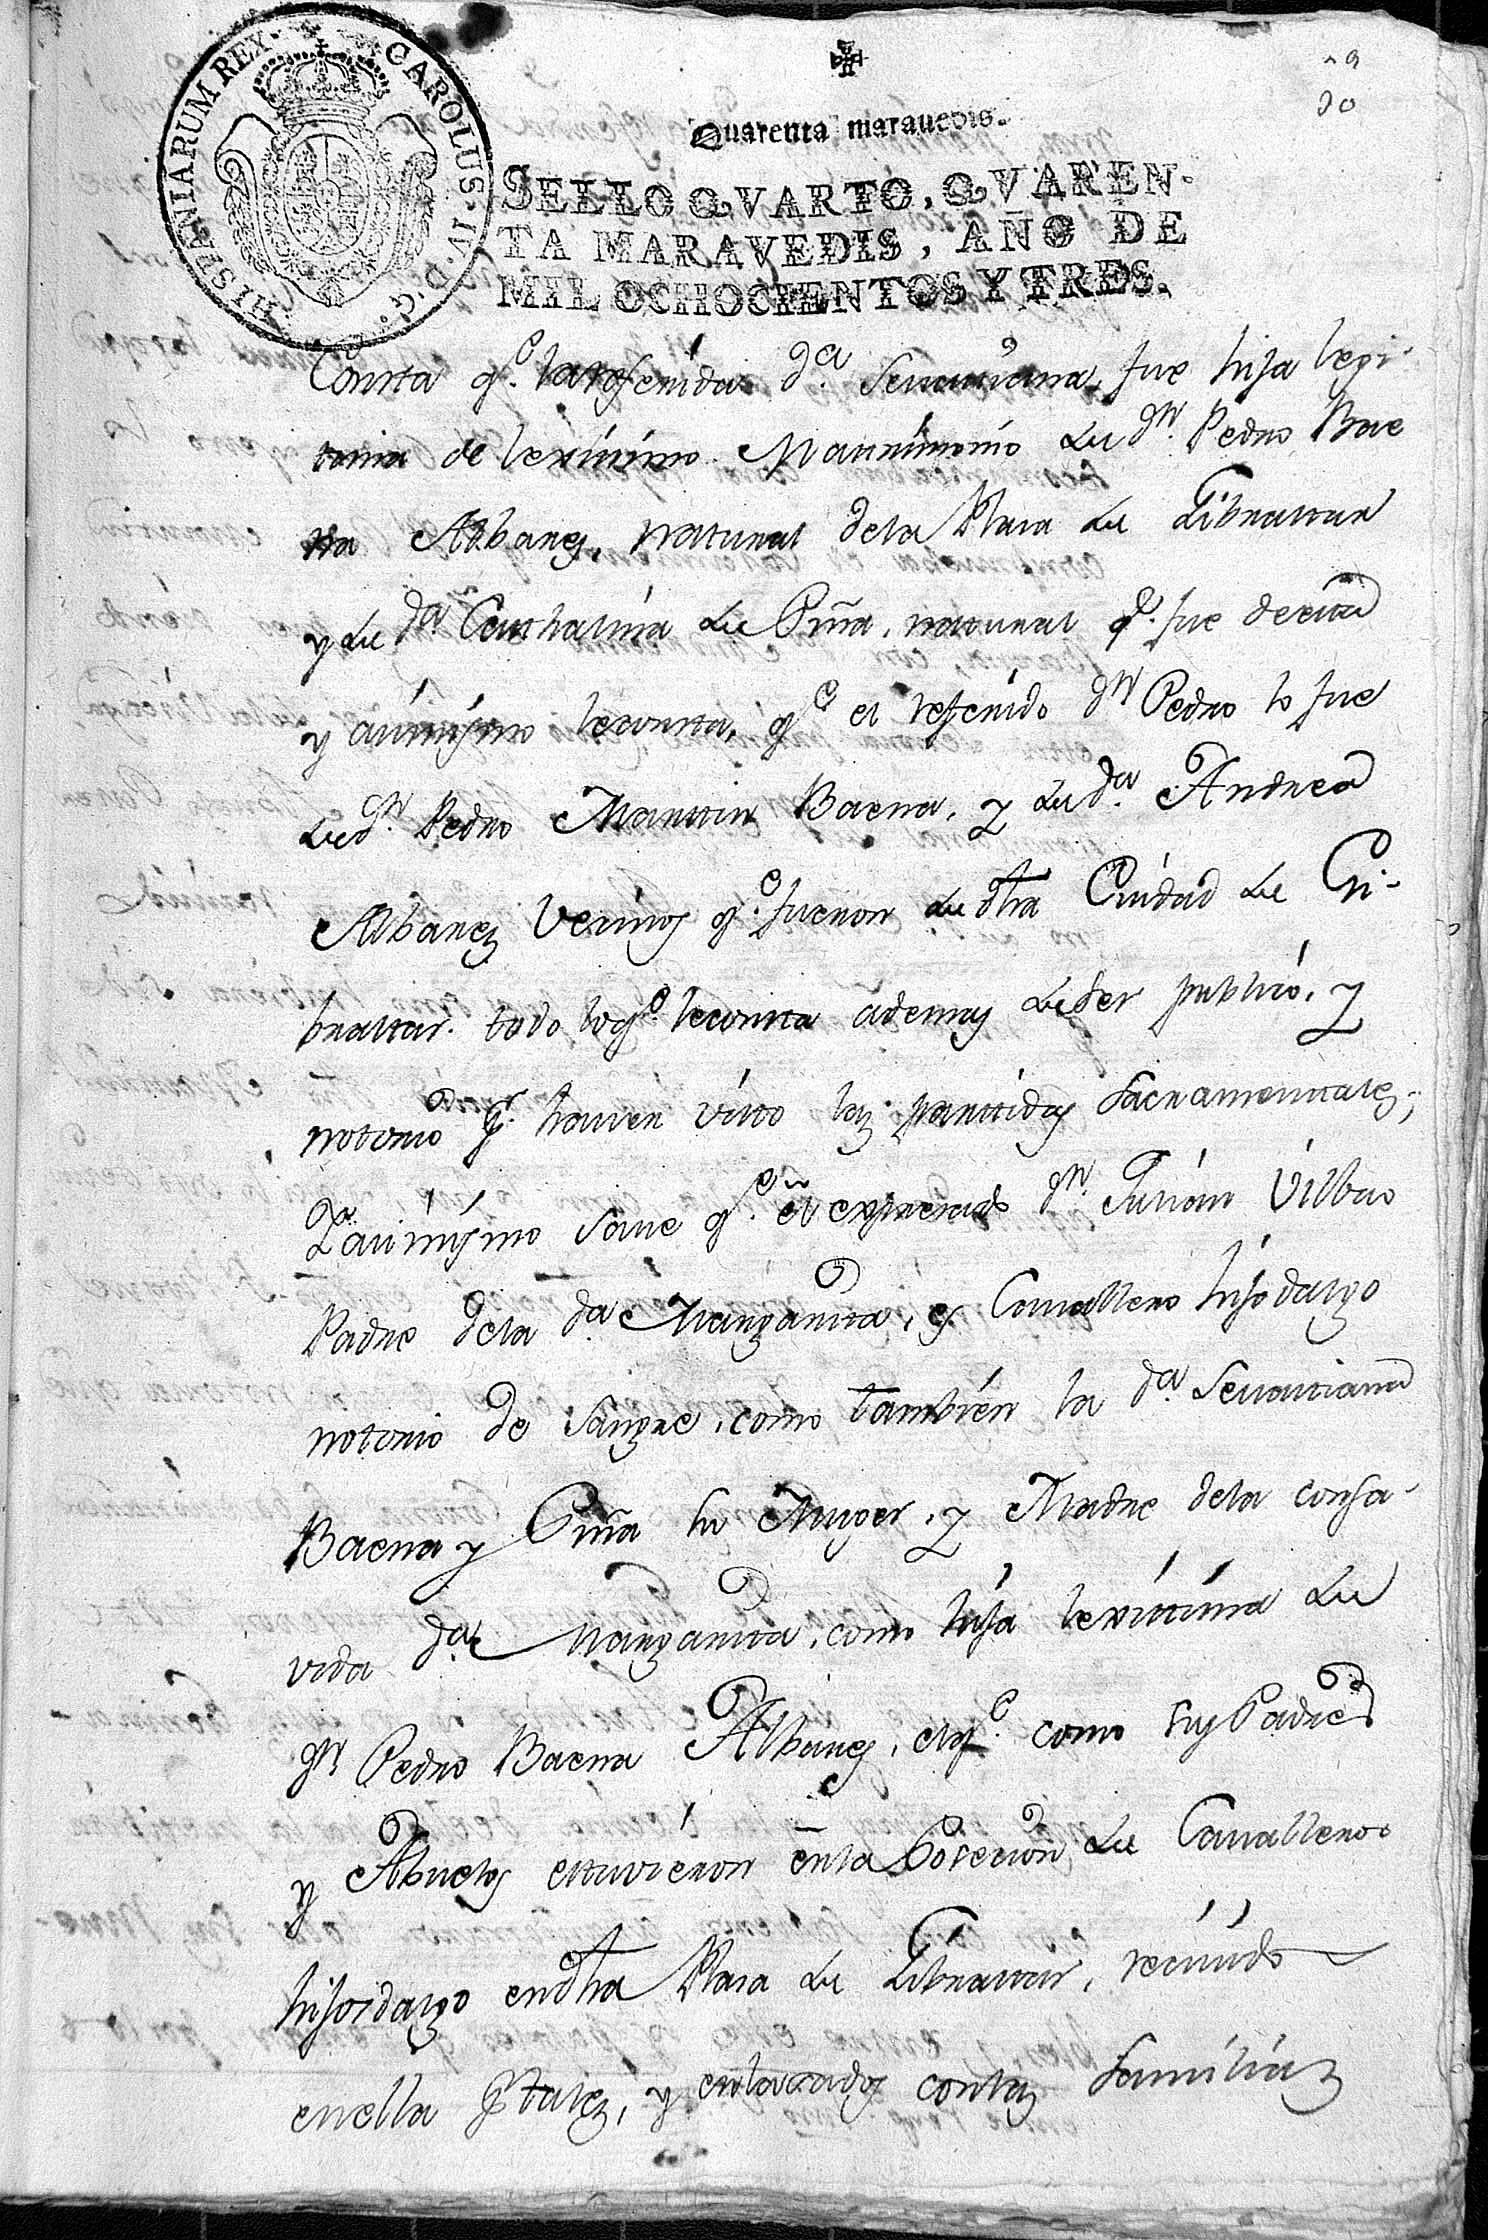 HISPANIARUM REX. CAROLUS. IV. D. G.
90
Quarenta maravedis.
SELLO QVARTO, QVAREN-
TA MARAVEDIS, AÑO DE
MIL OCHOCIENTOS Y TRES.
Consta qe. la referida Da. Sevastiana, fue hija legi-
tima de lexitimo Matrimonio de Dn. Pedro Bae
na Albanes, natural dela Plaza de Gibraltar
y de Da. Cathalina de Piña, natural qe. fue de esta
y asimismo le consta, qe. el referido Dn. Pedro lo fue
de Dn. Pedro Martin Baena, y de Da. Andrea
Albanez Vecinos qe. fueron de dha Ciudad de Gi-
braltar. todo lo qe. le consta ademas de ser publico, y
notorio pr. haver visto las partidas Sacramentales,
Y asimismo save qe. el expresado Dn. Julián Vilbao
Padre dela Da. Margarita, es Cavallero hijodalgo
notorio de Sangre, como también la Da. Sevastiana
Baena y Piña su Muger, y Madre dela consa-
vida Da. Margarita, como hija lexittima de
Dn. Pedro Baena Albanes, el qe. como sus Padres
y Abuelos estuvieron en la Posecion de Cavalleros
hijosdalgo en dha Plaza de Gibraltar, recivido
en ella pr. tales, y enlazados con las familias